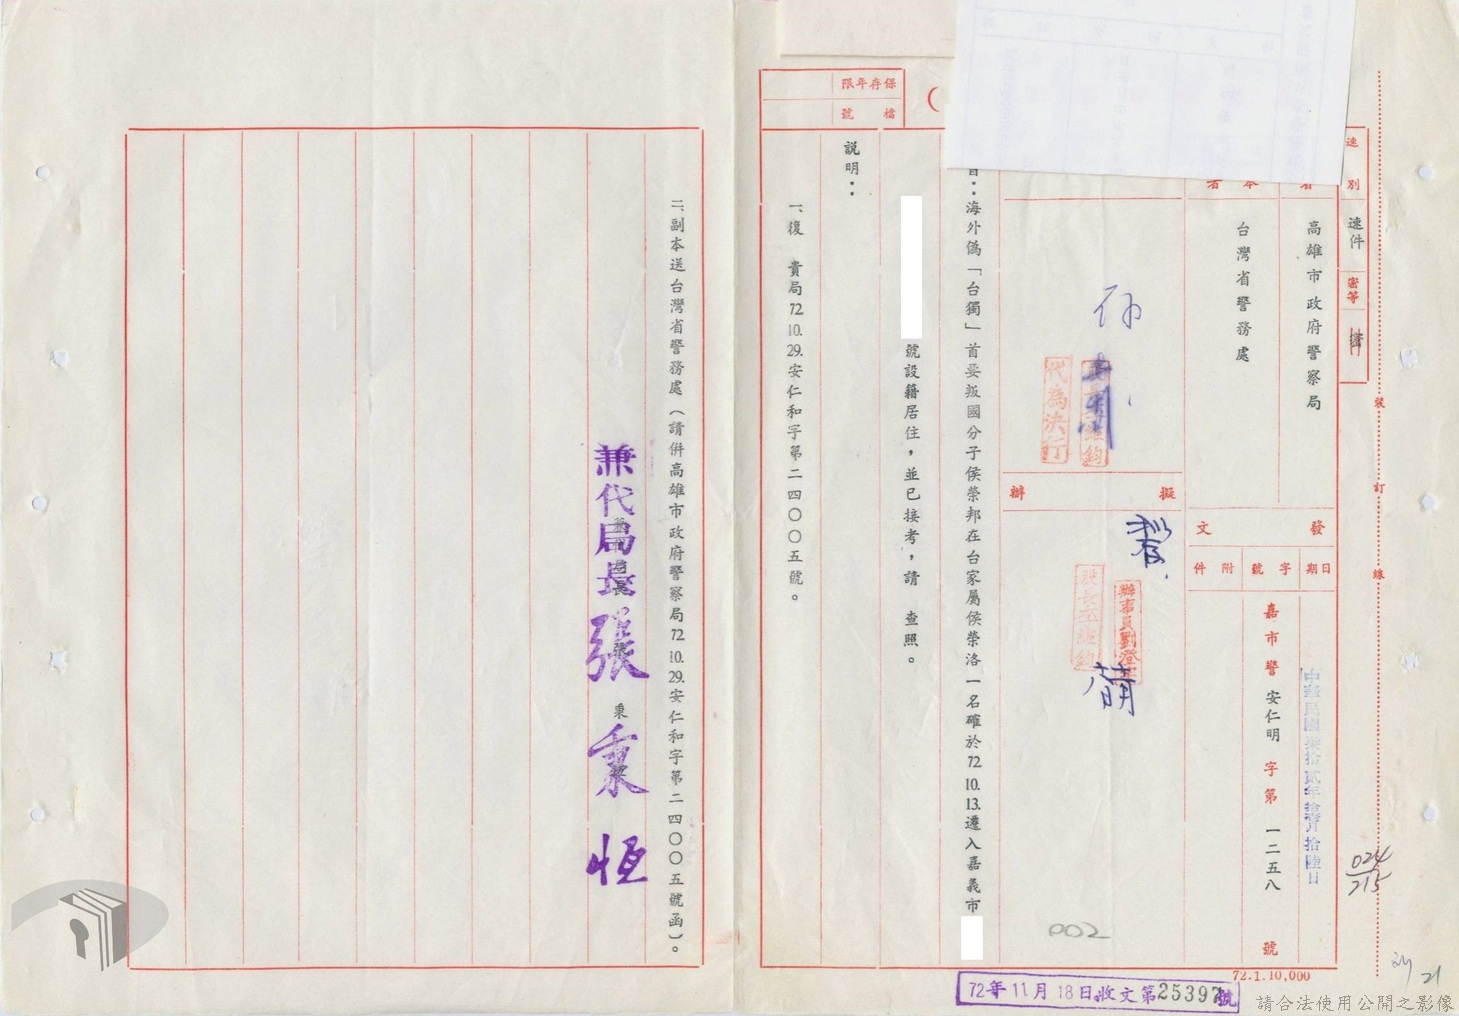 保存年限
檔號
（
速別
速件
密等
者
本者
高雄市政府警察局
台灣省警務處
擬辦
股長
代為決行
辦事員劉澄
發文
日期
字號
附件
中華民國柒拾貳年拾壹月拾陸日
嘉市警安仁明字第一二五八號
旨：海外偽「台獨」首要叛國分子侯榮邦在台家屬侯榮洛一名確於72.10.13.遷入嘉義市
號設籍居住，並已接考，請　查照。
說明：
一、復　貴局72.10.29.安仁和字第二四〇〇五號。
二、副本送台灣省警務處（請併高雄市政府警察局72.10.29.安仁和字第二四〇〇五號函）。
兼代局長張秉恒
裝
訂
線
024
215
002
21
72.1.10,000
72年11月18日收文第25397號
請合法使用公開之影像